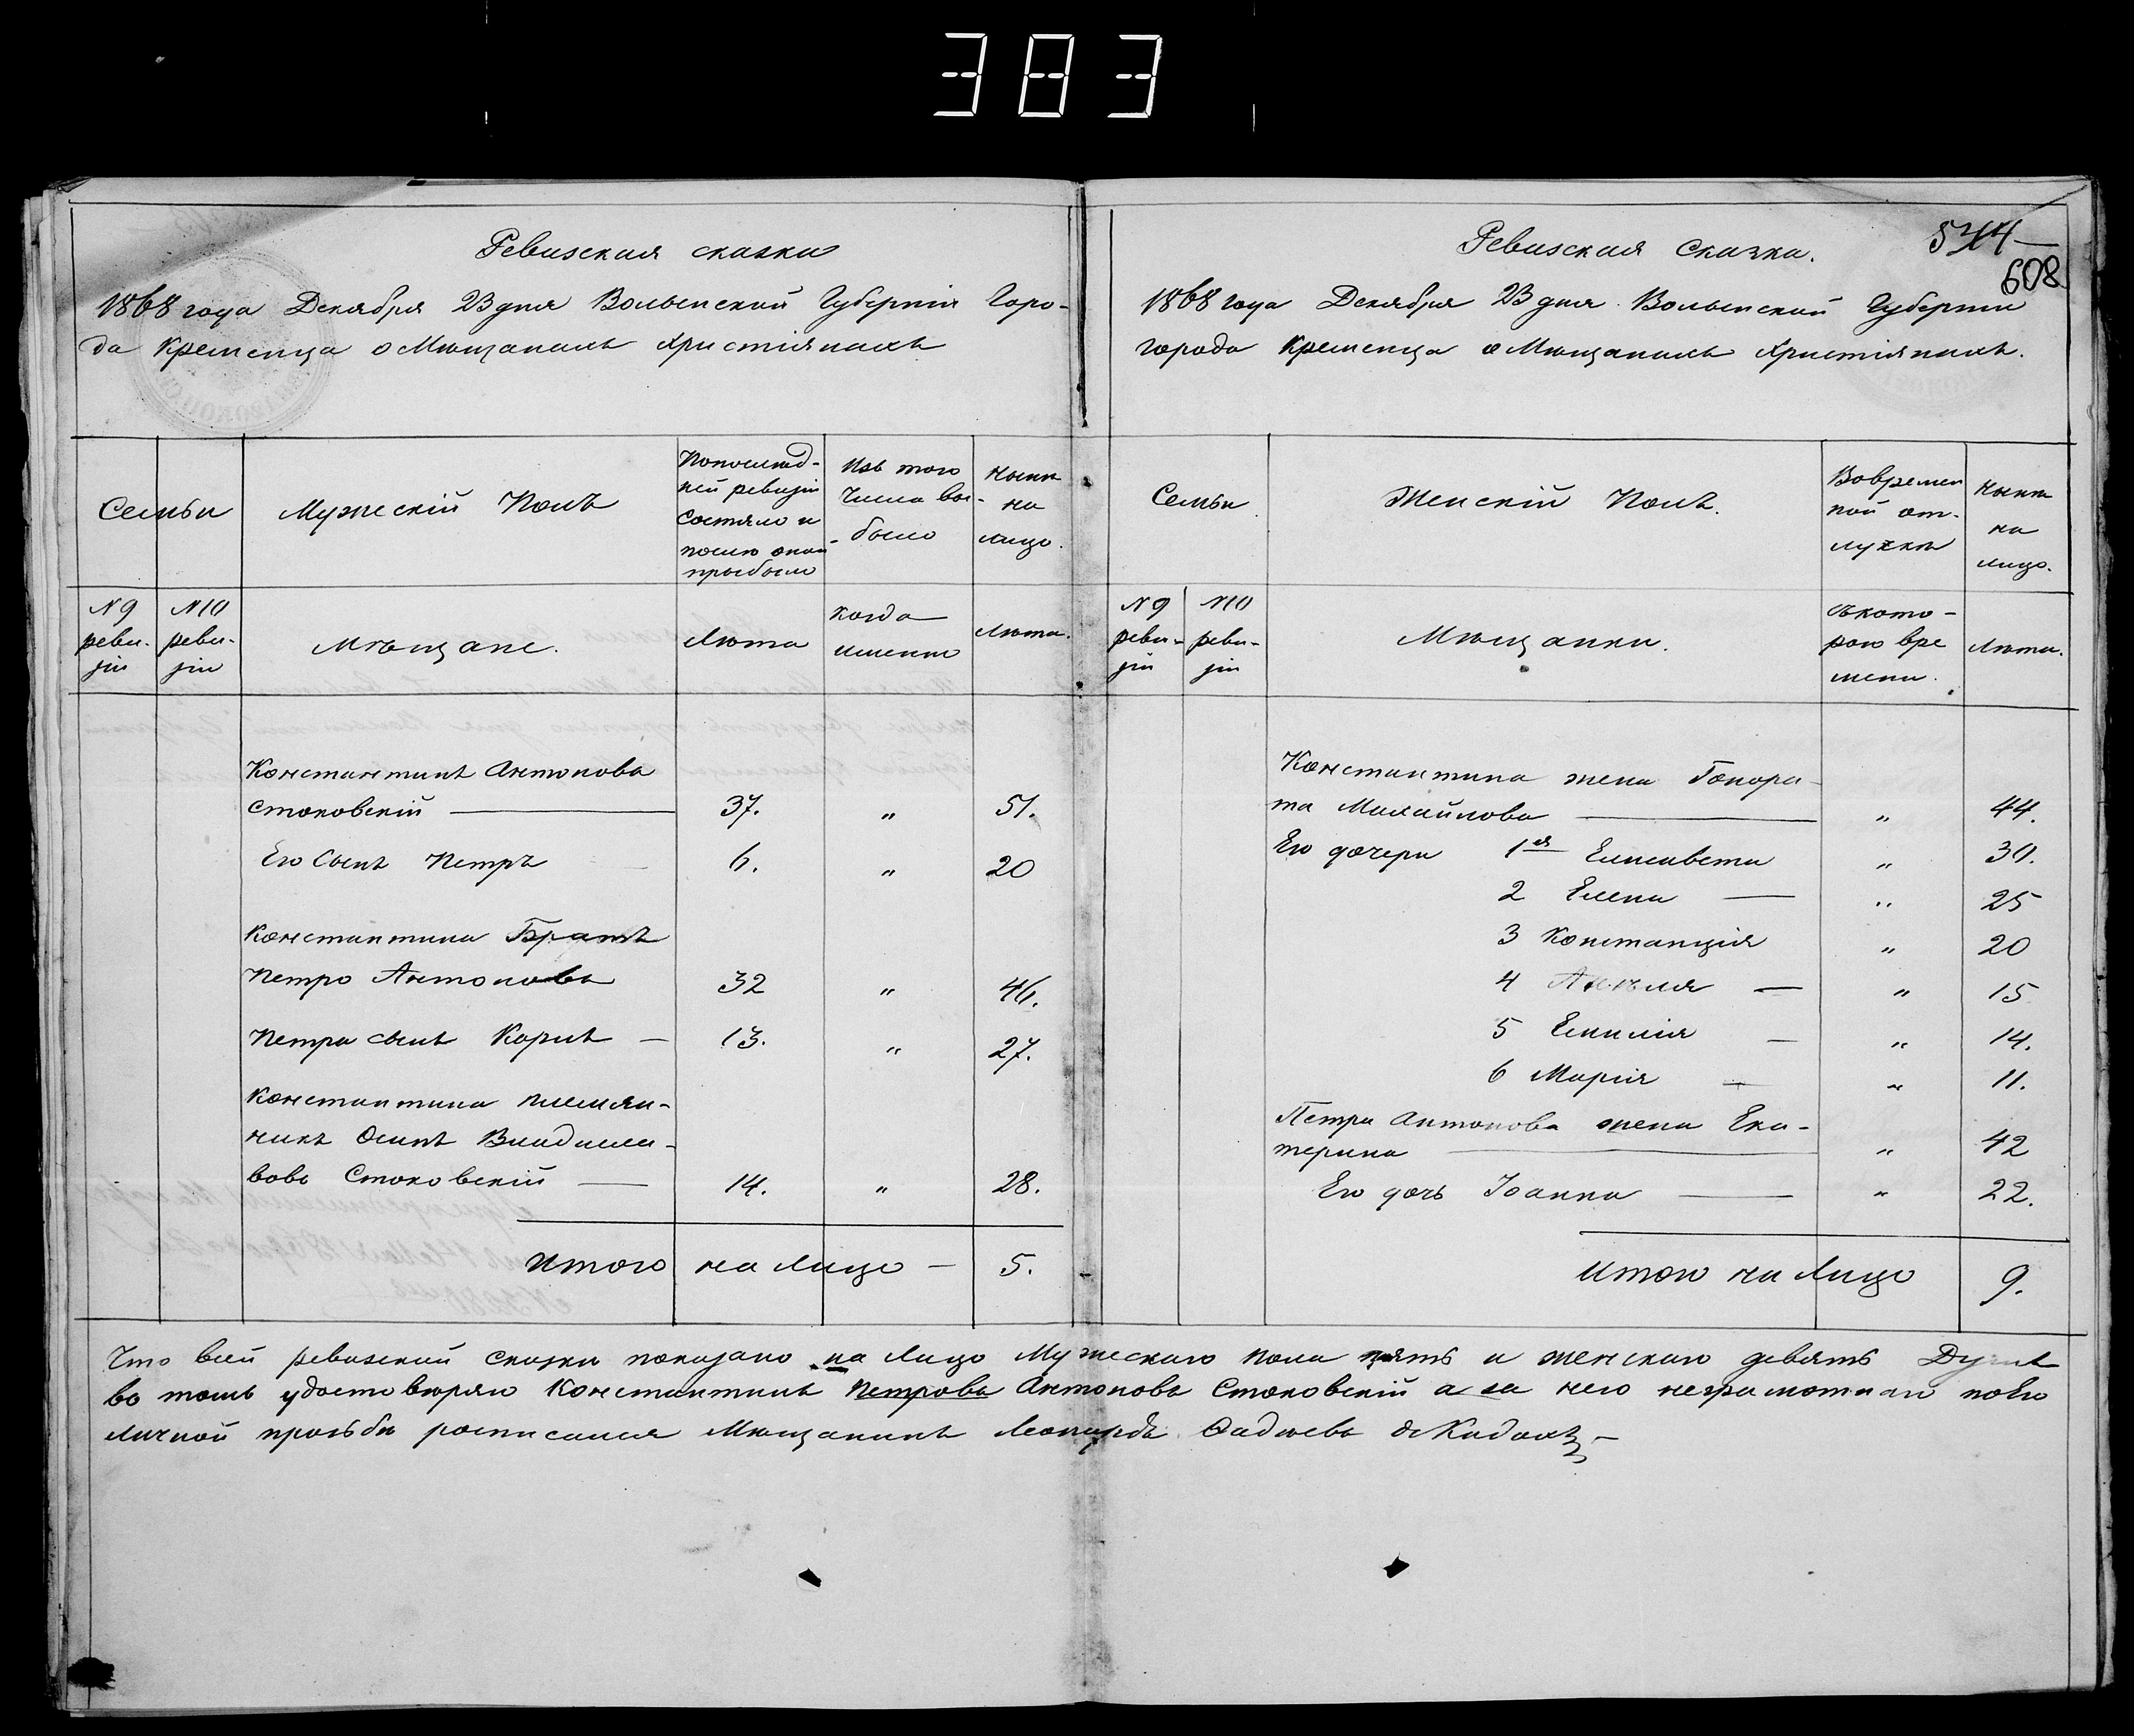 383
Ревизская сказка
1868 года Декабря 23 дня Волынской Губерніи Горо-
да Кременца о Мѣщанахъ Христіянахъ
Семьи
Мужескій Полъ
Попослѣд-
ней ревизіи
состяло и
послѣ оной
прыбыло
Изъ того
числа вы-
было
Нынѣ
на
лицо.
N 9
реви-
зіи
N 10
реви-
зіи
Мѣщане.
Лѣта
когда
именно
Лѣта.
Константинъ Антоновъ
Стоковскій — 37. „ 51.
Его Сынъ Петръ 6. „ 20
Константина Братъ
Петро Антоновъ 32 „ 46.
Петра сынъ Кароль — 13. „ 27.
Константина племян-
никъ Осипъ Владисла-
вовъ Стоковскій — 14. „ 28.
Итого на лицо — 5.
544
608
Ревизская Сказка.
1868 года Декабря 23 дня Волынской Губерніи
города Кременца о Мѣщанахъ Христіянахъ.
Семьи
Женскій Полъ.
Вовремен
ной от-
лучкѣ
Нынѣ
на
лицо.
N 9
реви-
зіи
N 10
реви-
зіи
Мѣщанки.
съкото-
рого вре
мени.
Лѣта.
Константина жена Гонора-
та Михайлова — „ 44.
Его дочери 1ая Елисавета „ 30.
2 Елена — „ 25
3 Констанція „ 20
4 Анѣля — „ 15
5 Емилія — „ 14.
6 Марія — „ 11.
Петра Антонова жена Ека-
терина — „ 42
Его дочь Іоанна — „ 22.
Итого на Лицо 9.
Что всей ревизской сказки показано на Лицо Мужескаго пола пять и женскаго девять Душъ
во томъ удостовѣряю Константинъ Петровъ Антоновъ Стоковскій а за него неграмотнаго поЕго
личной прозьбѣ росписался Мѣщанинъ Леонардъ